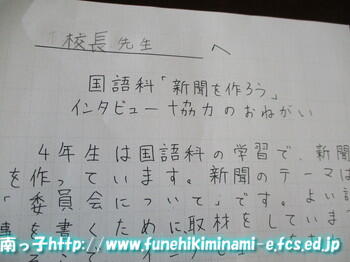 校長先生 へ
国語科「新聞を作ろう」
インタビュー協力のおねがい
4年生は国語科の学習で、新聞
を作っています。新聞のテーマは
「委員会について」です。よい記
事を書くために、取材をしていま
南っ子http://www.funehikiminami-e.fcs.ed.jp